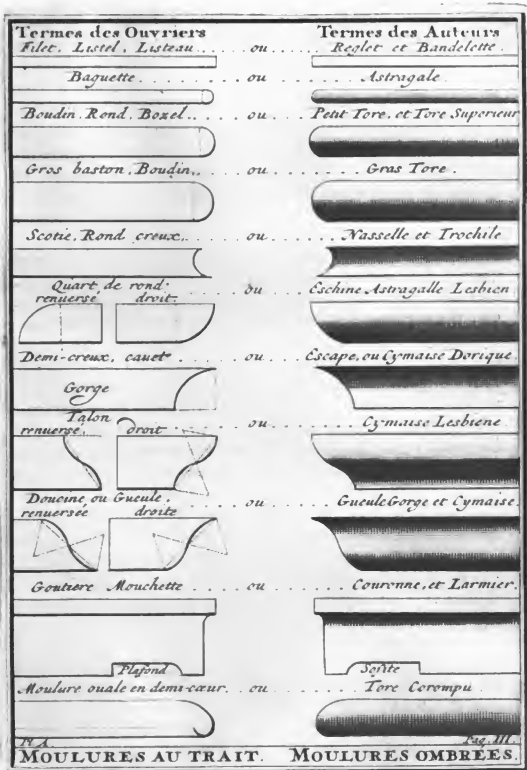 Termes des Ouvriers Termes des Auteurs
Filet, Listel, Listeau... ou ... Reglet et Bandelette.
Baguette ... ou ... Astragale.
Boudin, Rond, Bozel... ou ... Petit Tore, et Tore Superieur
Gros baston, Boudin... ou ... Gras Tore.
Scotie, Rond creux... ou ... Nasselle et Trochile
Quart de rond ou ... Eschine Astragalle Lesbien
renuersé droit
Demi-creux, cauet ... ou ... Escape, ou Cymaise Dorique
Gorge
Talon ou ... Cymaise Lesbiene
renuersé, droit
Doucine ou Gueule, ou ... Gueule Gorge et Cymaise.
renuersée droite
Goutiere Mouchette ... ou ... Couronne, et Larmier.
Plafond Sofite
Moulure ouale en demi-cœur. ou ... Tore Corompu
Pl A. Pag. III.
MOULURES AU TRAIT. MOULURES OMBRÉES.